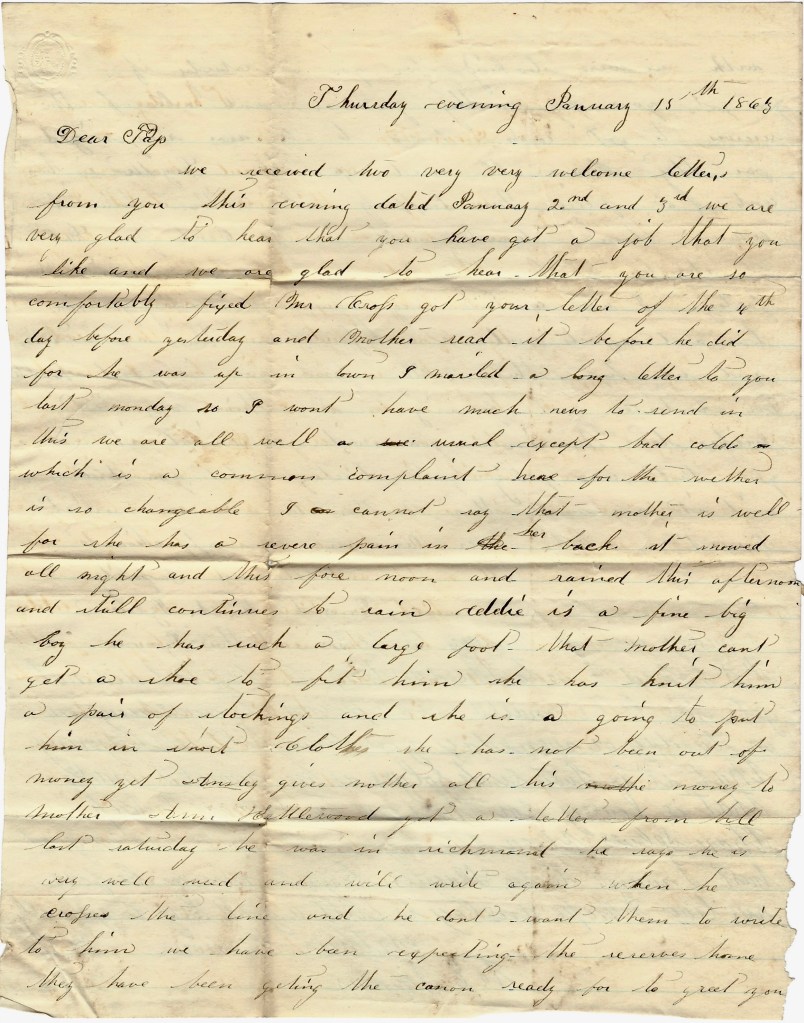 Thursday evening January 15th 1863
Dear Pap
we received two very very welcome letters
from you this evening dated January 2nd and 3rd we are
very glad to hear that you have got a job that you
like and we are glad to hear that you are so
comfortably fixed Mr Cross got your letter of the 4th
day before yesterday and Mother read it before he did
for he was up in town I mailed a long letter to you
last monday so I wont have much news to send in
this we are all well as usual except bad colds
which is a common complaint here for the wether
is so changeable I cannot say that mother is well
for she has a severe pain in her back it snowed
all night and this fore noon and rained this afternoon
and still continues to rain eddie is a fine big
boy he has such a large foot that Mother cant
get a shoe to fit him she has knit him
a pair of stockings and she is a going to put
him in short Cloths she has not been out of
money yet Ansley gives mother all his money to
mother Ann got a letter from bill
last saturday he was in richmond he says he is
very well used and will write again when he
crosses the line and he dont want them to write
to him we have been expecting the reserves home
they have been geting the canon ready for to greet you